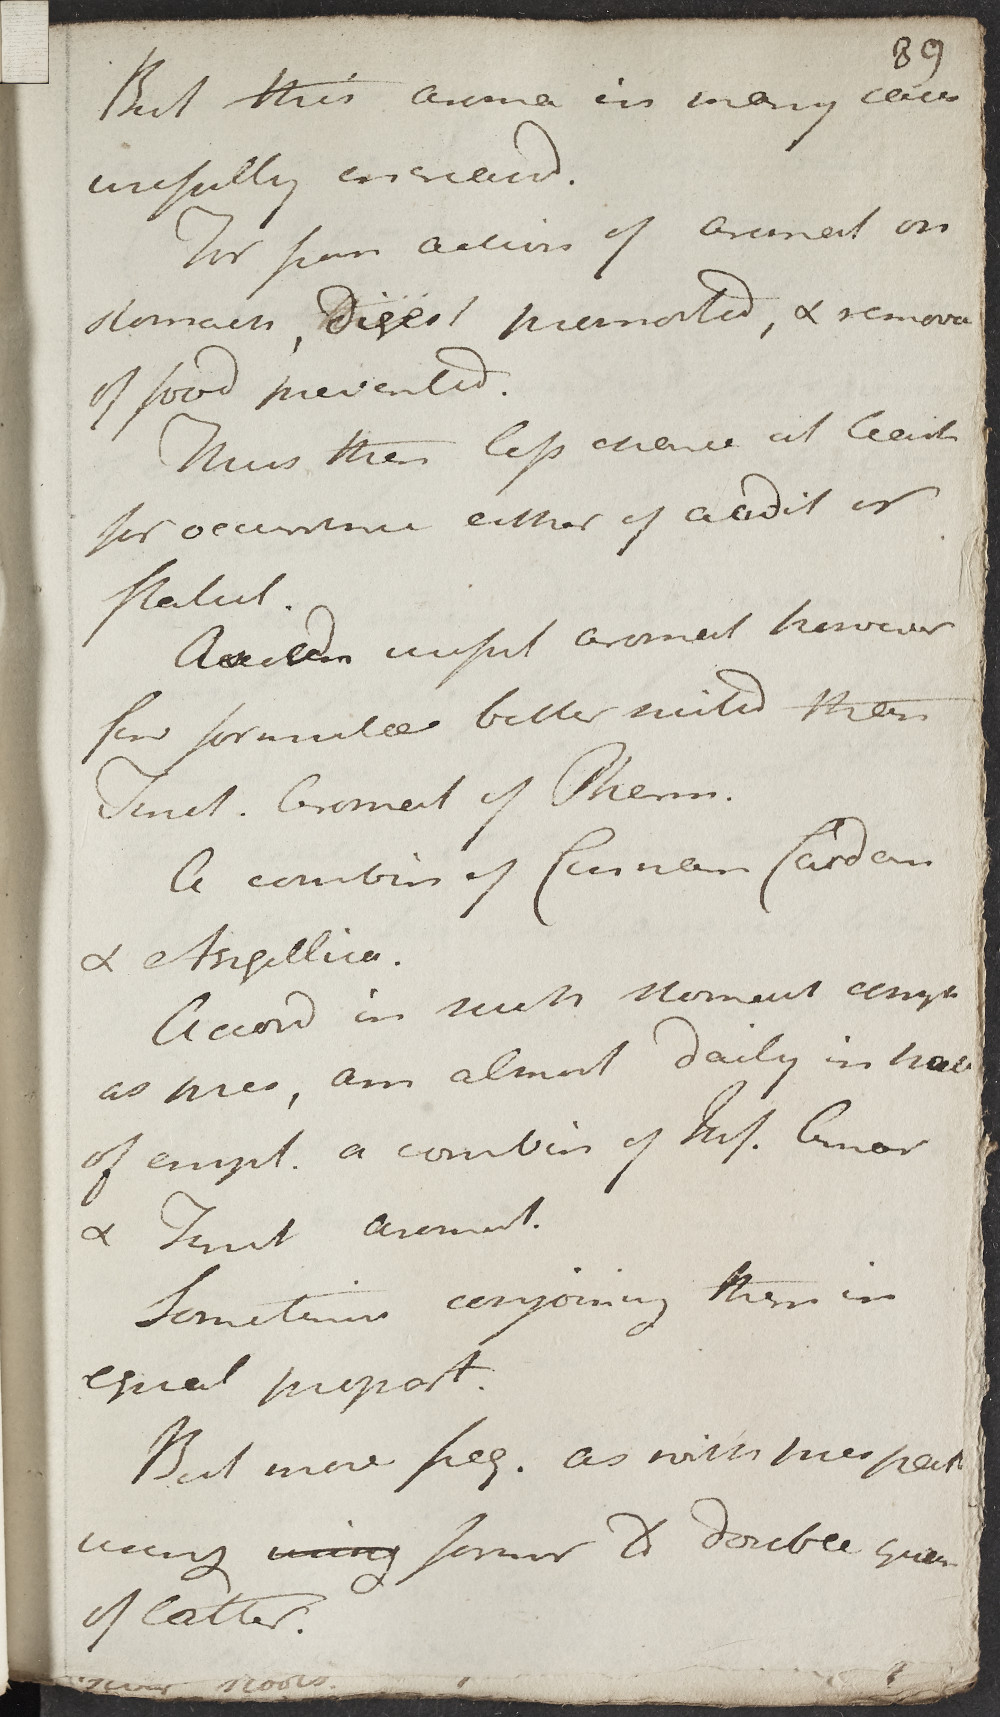 89
But this aroma in many cases
usefully encreased.
For from action of aromat on
stomach, Digest promoted, & remova
of food prevented.
Thus then less chance at least
for occurrence either of acidit or
flatul.
useful aromat however
few formulae better suited than
Tinct. Aromat of Pharm.
A combin of Cinnam Cardam
& Angellica.
Accord in such stomach comp
as pres, am almost daily in hab
of empl. a combin of Inf. Amar
& Tinct aromat.
Sometimes conjoining them in
equal proport.
But more freq. as with pres patt
using using former to double quan
of latter.
stools.